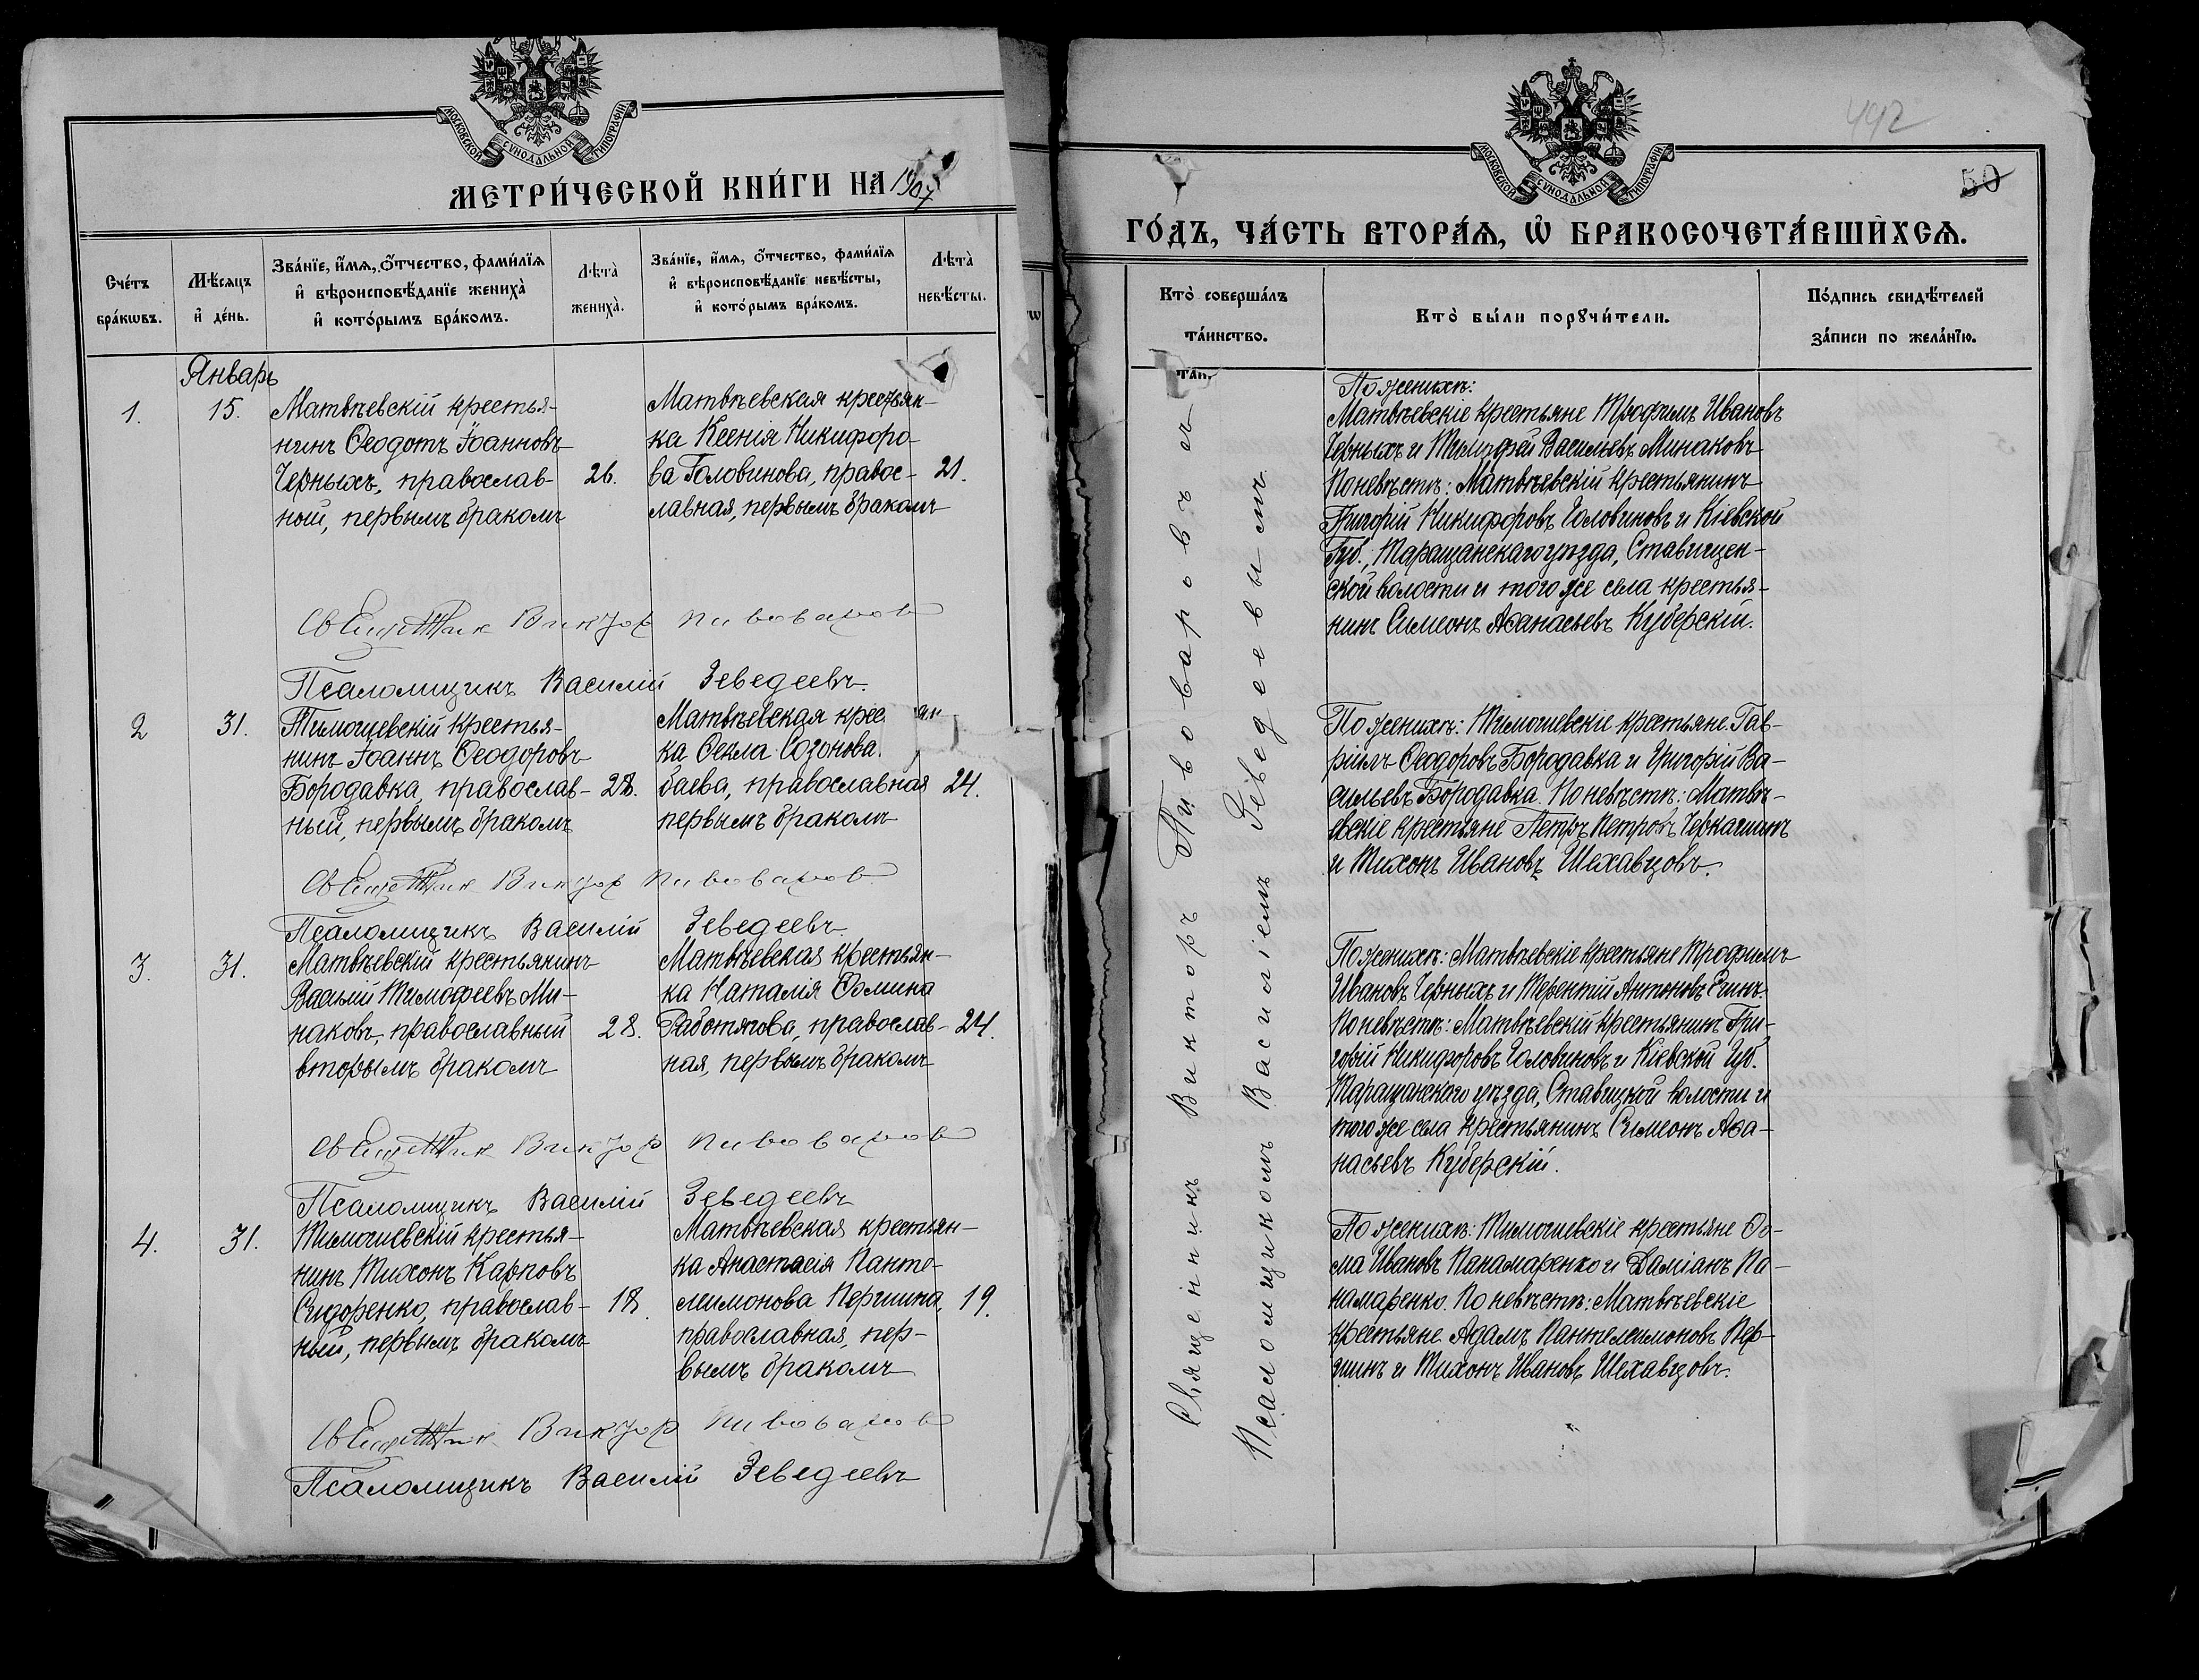 МОСКОВСКОЙ СѴНОДАЛЬНОЙ ТИПОГРАФІИ.
МЕТРИ́ЧЕСКОЙ КНИ́ГИ НА 1907
Сче́тъ бра́кωвъ.
Мѣ́сяцъ и҆ де́нь.
Зва́нїе, и҆́мя, ѻ҆́тчество, фами́лїя
и҆ вѣроисповѣ́данїе жениха̀
и҆ кото́рымъ бра́комъ.
Лѣта̀
жениха̀.
Зва́нїе, и҆́мя, ѻ҆́тчество, фами́лїя
и҆ вѣроисповѣ́данїе невѣ́сты,
и҆ кото́рымъ бра́комъ.
Лѣта̀
невѣ́сты.
Январь
1.
15.
Матвѣевскій крестья-
нинъ Ѳеодотъ Іоанновъ
Черныхъ, православ-
ный, первымъ бракомъ
26.
Матвѣевская крестьян-
ка Ксенія Никифоро-
ва Головинова, правос-
лавная, первымъ бракомъ
21.
Священник Виктор Пивоваров
Псаломщикъ Василій Зеведеевъ.
2
31.
Тимошевскій крестья-
нинъ Іоаннъ Ѳеодоровъ
Бородавка, православ-
ный, первымъ бракомъ
28.
Матвѣевская крес
ка Ѳекла Созонова.
баева, православная
первымъ бракомъ
24.
Священник Виктор Пивоваров
Псаломщикъ Василій Зеведеевъ.
3.
31.
Матвѣевскій крестьянинъ
Василій Тимофеевъ Ми-
наковъ, православный
вторымъ бракомъ
28.
Матвѣевская крестьян-
ка Наталія Ѳомина
Работягова, православ-
ная, первымъ бракомъ
24.
Священник Виктор Пивоваров
Псаломщикъ Василій Зеведеевъ
4.
31.
Тимошевскій крестья-
нинъ Тихонъ Карповъ
Сидоренко, православ-
ный, первымъ бракомъ
18.
Матвѣевская крестьян-
ка Анастасія Панте-
леимонова Першина,
православная, пер-
вымъ бракомъ
19.
Священник Виктор Пивоваров
Псаломщикъ Василій Зеведеевъ
МОСКОВСКОЙ СѴНОДАЛЬНОЙ ТИПОГРАФІИ.
442
50
ГО́ДЪ, ЧА́СТЬ ВТОРА́Я, Ѡ҆ БРАКОСОЧЕТА́ВШИХСЯ.
Кто̀ соверша́лъ
та́инство.
Кто̀ бы́ли порꙋчи́тели.
По́дпись свидѣ́телей
за́писи по жела́нїю.
Священникъ Викторъ Пивоваровъ съ
Псаломщикомъ Василіемъ Зеведеевымъ
По женихѣ:
Матвѣевскіе крестьяне Трофимъ Ивановъ
Черныхъ и Тимофей Васильевъ Минаковъ
По невѣстѣ: Матвѣевскій крестьянинъ
Григорій Никифоровъ Головиновъ и Кіевской
Губ., Таращанскаго уѣзда, Ставищен-
ской волости и того же села крестья-
нинъ Симеонъ Аѳанасьевъ Куберскій.
По женихѣ: Тимошевскіе крестьяне Гав-
ріилъ Ѳеодоровъ Бородавка и Григорій Ва-
сильевъ Бородавка. По невѣстѣ: Матвѣ-
евскіе крестьяне Петръ Петровъ Черкашинъ
и Тихонъ Ивановъ Шехавцовъ.
По женихѣ: Матвѣевскіе крестьяне Трофимъ
Ивановъ Черныхъ и Терентій Антоновъ Егинъ.
По невѣстѣ: Матвѣевскій крестьянинъ Гри-
горій Никифоровъ Головиновъ и Кіевской Губ.
Таращанскаго уѣзда, Ставицкой волости и
того же села крестьянинъ Симеонъ Аѳа-
насьевъ Куберскій.
По женихѣ: Тимошевскіе крестьяне Ѳо-
ма Ивановъ Панамаренко и Даміанъ Па-
намаренко. По невѣстѣ: Матвѣевскіе
крестьяне Адамъ Пантелеимоновъ Пер-
шинъ и Тихонъ Ивановъ Шехавцовъ.